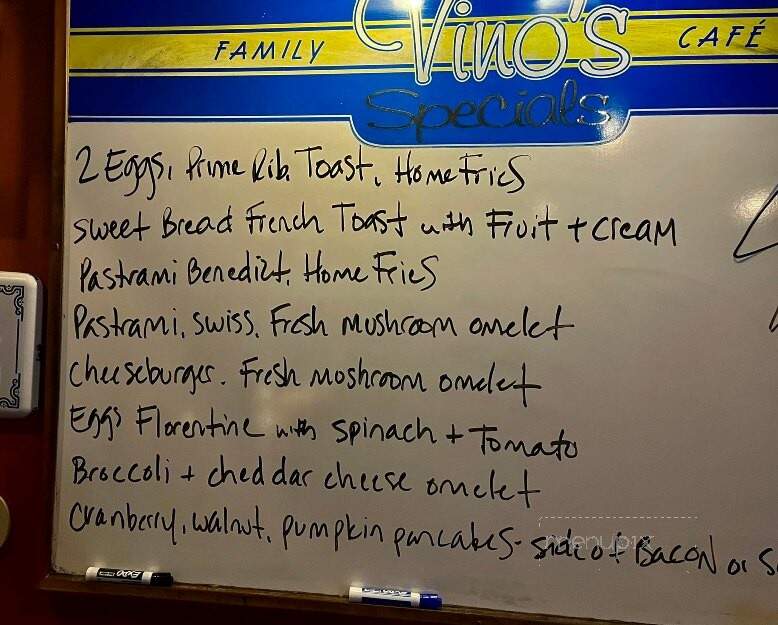 FAMILY Vino's CAFÉ
Specials
2 Eggs, Prime Rib, Toast, Home Fries
sweet Bread French Toast with Fruit + cream
Pastrami Benedict, Home Fries
Pastrami, swiss, Fresh mushroom omelet
Cheeseburger, Fresh moshroom omelet
Eggs Florentine with spinach + Tomato
Broccoli + cheddar cheese omelet
Cranberry, walnut, pumpkin pancakes - side of BACON or
menupix
EXPO